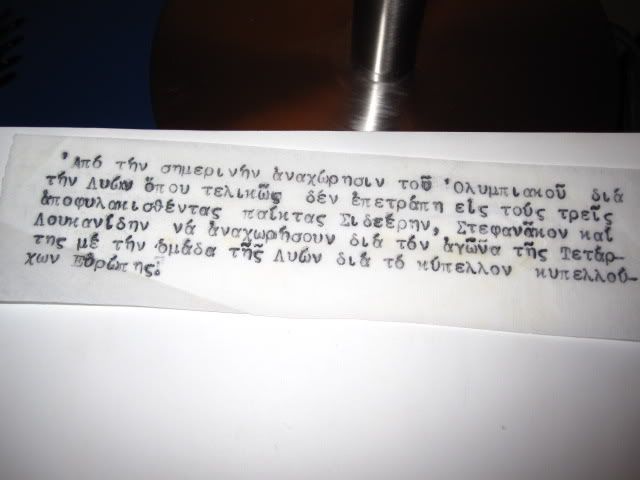 Ἀπό τήν σημερινήν ἀναχώρησιν τοῦ Ὀλυμπιακοῦ διά
τήν Λυών ὅπου τελικῶς δέν ἐπετράπη εἰς τούς τρεῖς
ἀποφυλακισθέντας παῖκτας Σιδέρην, Στεφανᾶκον καί
Λουκανίδην νά ἀναχωρήσουν διά τόν ἀγῶνα τῆς Τετάρ-
της μέ τήν ὁμάδα τῆς Λυών διά τό κύπελλον κυπελλού-
χων Εὐρώπης.